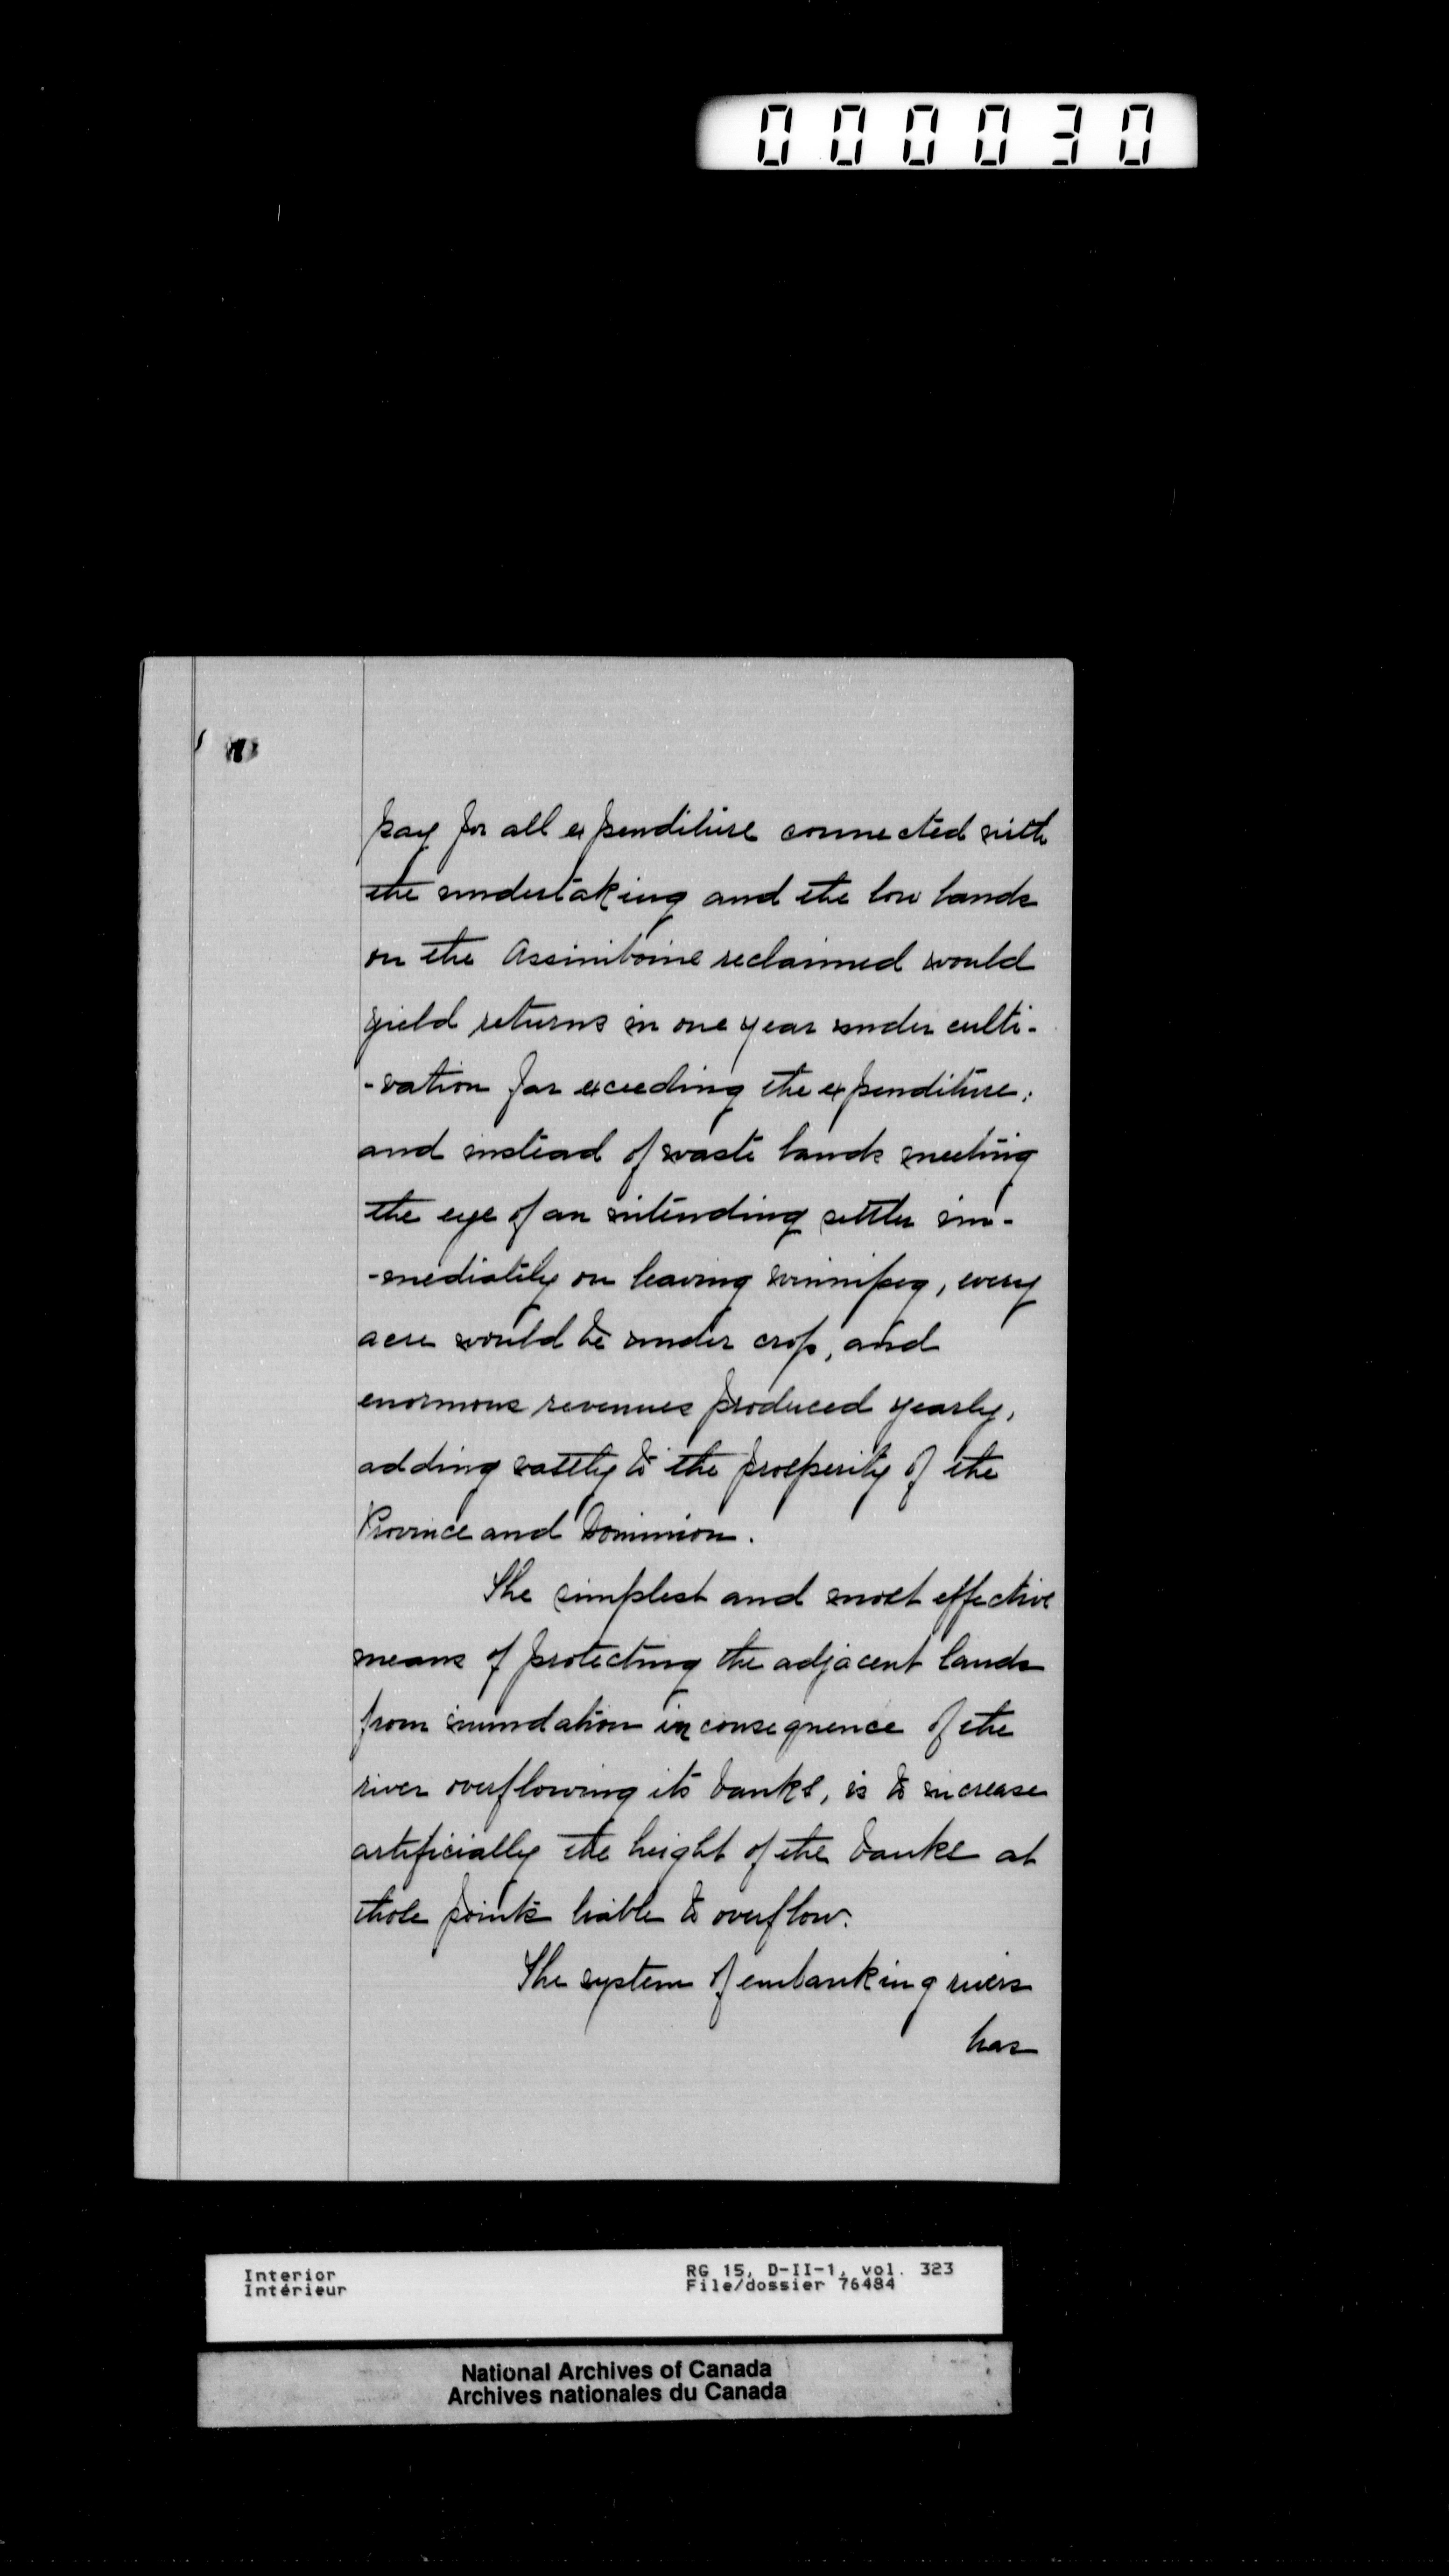 000030
pay for all expenditure connected with
the undertaking and the low lands
on the Assiniboine reclaimed would
yield returns in one year under culti-
-vation far exceeding the expenditure;
and instead of waste lands meeting
the eye of an intending settler im-
-mediately on leaving Winnipeg, every
acre would be under crop, and
enormous revenues produced yearly,
adding vastly to the prosperity of the
Province and Dominion.
The simplest and most effective
means of protecting the adjacent lands
from inundation in consequence of the
river overflowing its banks, is to increase
artificially the height of the banks at
those points liable to overflow.
The system of embanking rivers
has
Interior RG 15, D-II-1, vol. 323
Intérieur File/dossier 76484
National Archives of Canada
Archives nationales du Canada